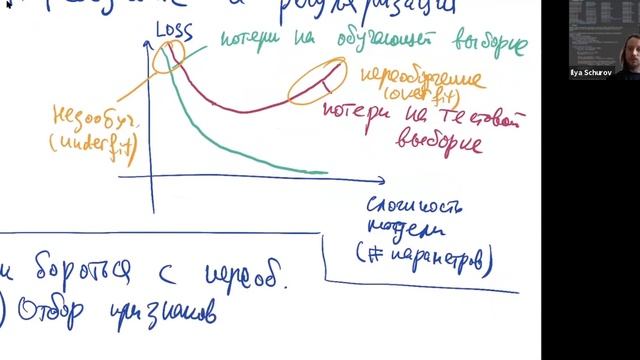 и регуляризация
Loss
потери на обучающей выборке
переобучение
(overfit)
недообуч.
(underfit)
потери на тестовой
выборке
сложность
модели
(# параметров)
бороться с переоб.
) Отбор признаков
Ilya Schurov